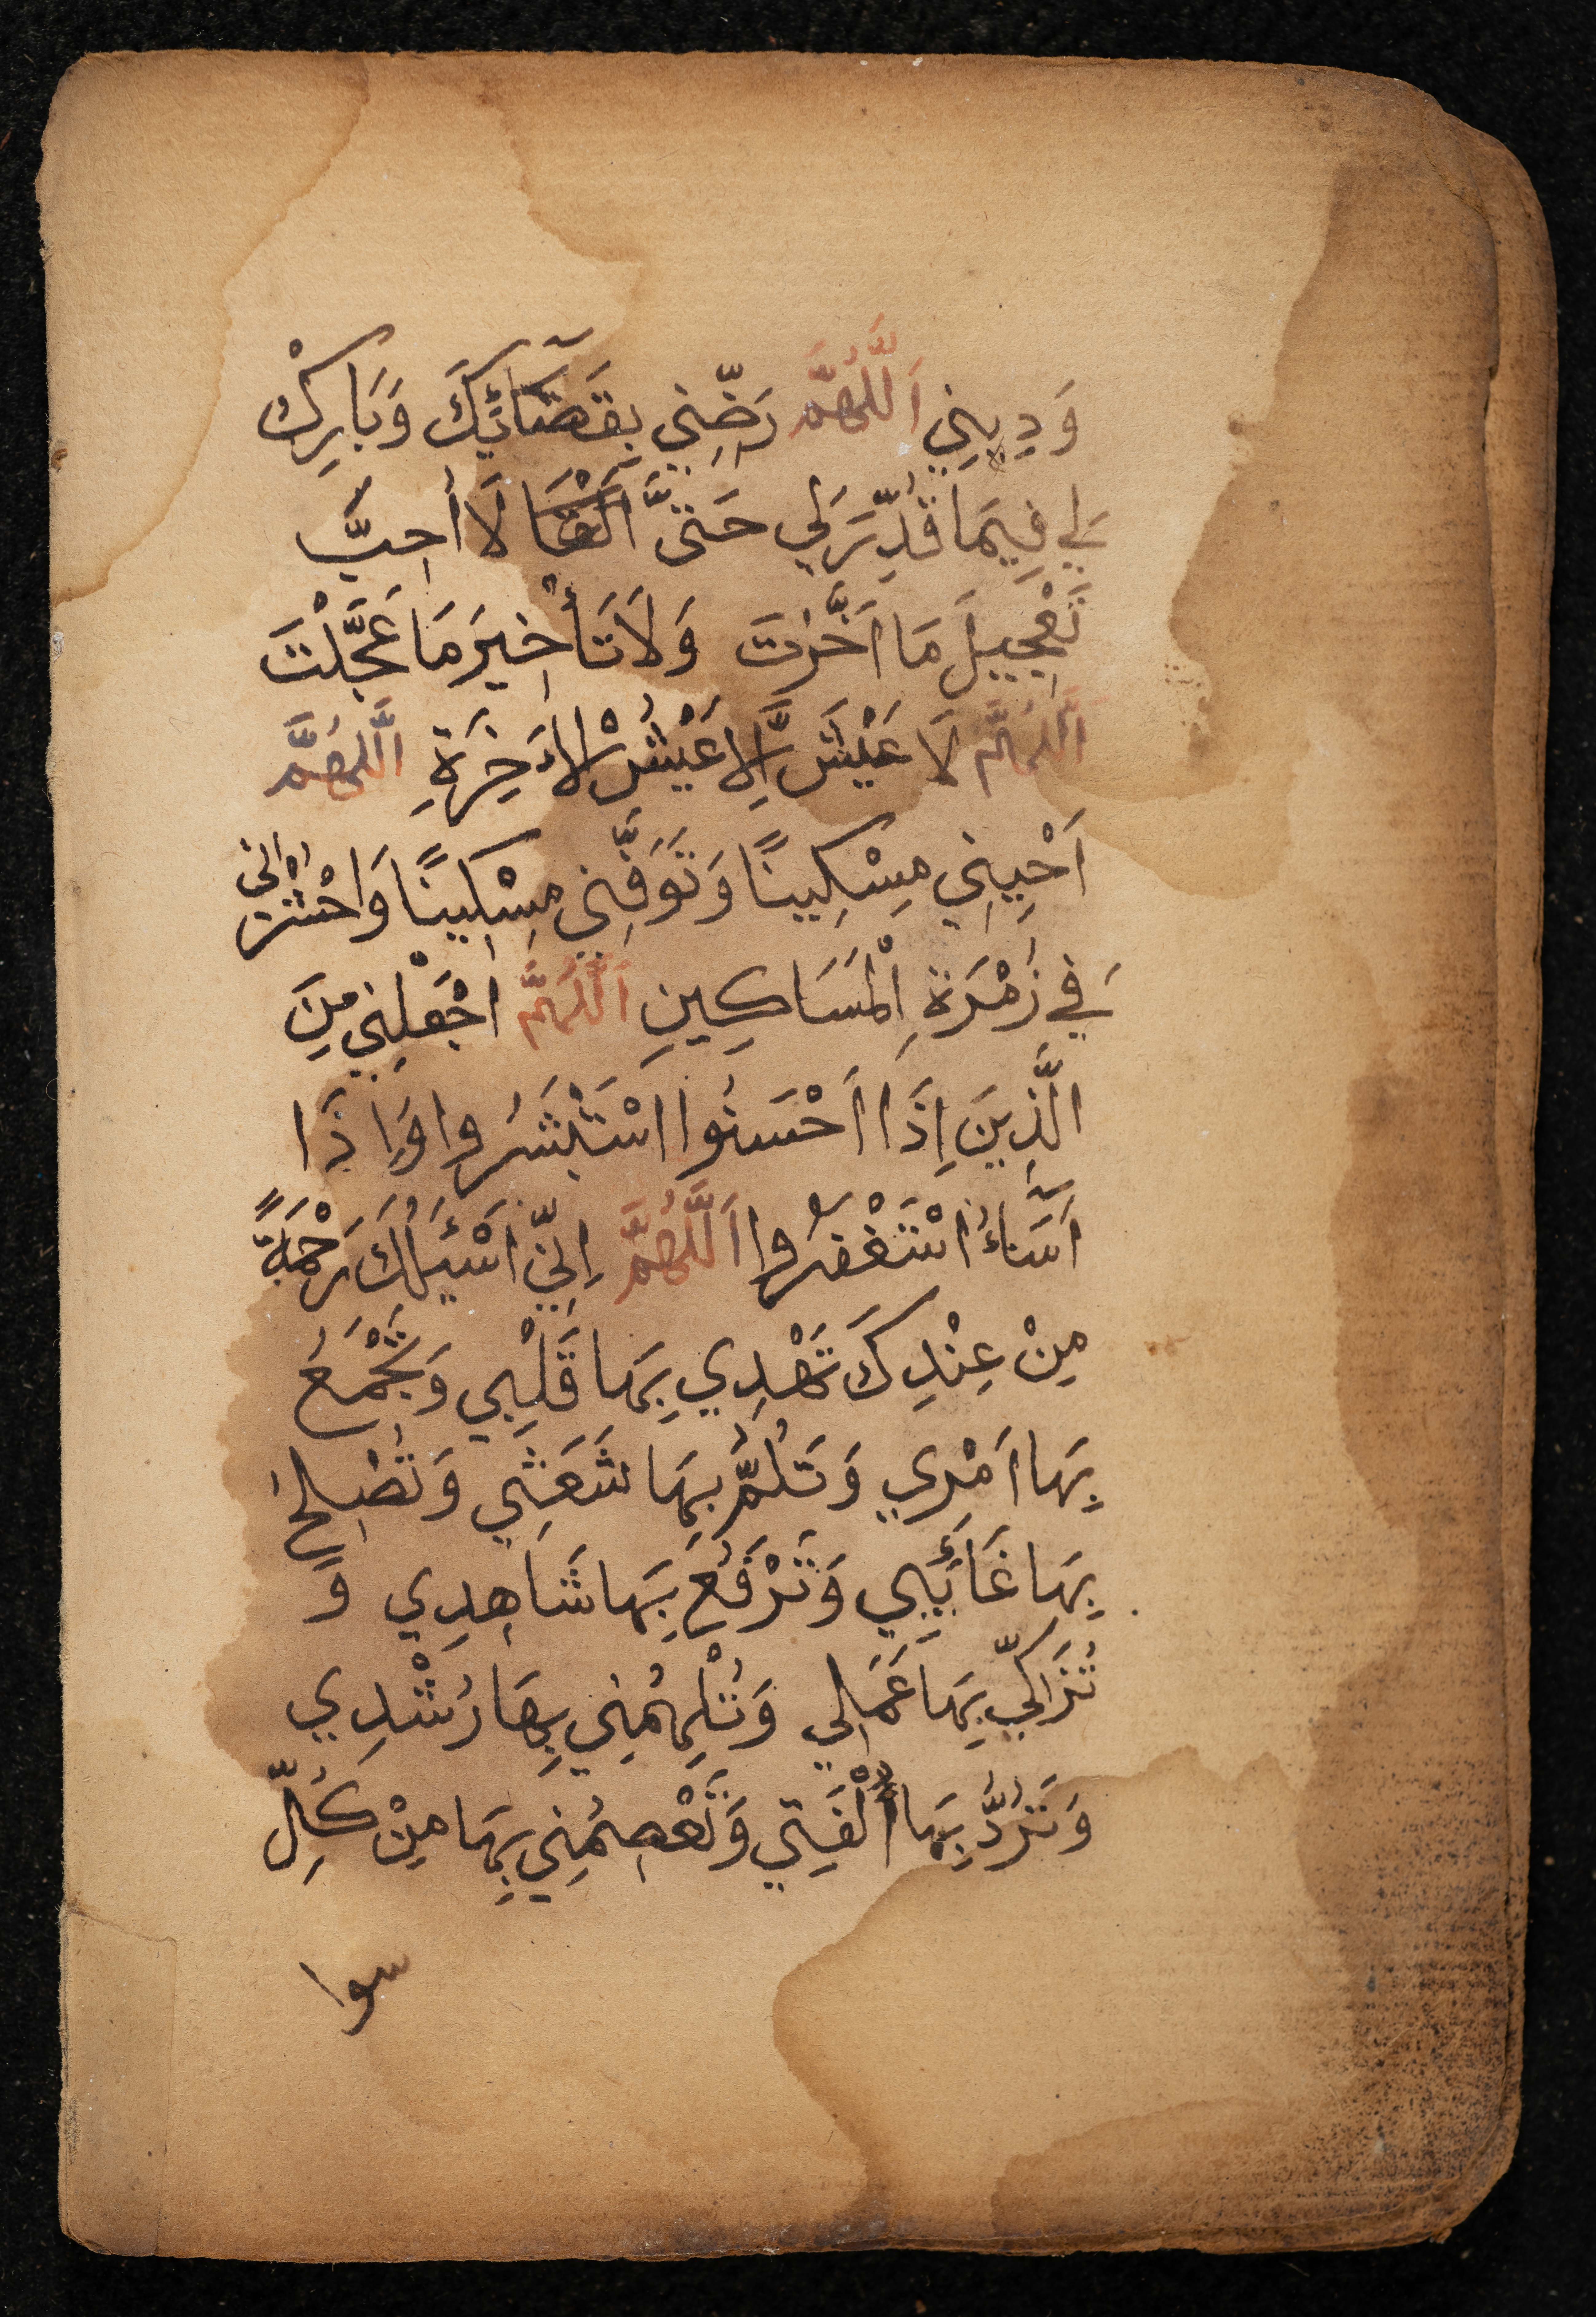 وَدِينِي اَللَّهُمَّ رَضِّنِي بِقَضَآئِكَ وَبَارِكْ
لِي فِيمَا قُدِّرَ لِي حَتَّى اَلْقَا لَا أُحِبَّ
تَعْجِيلَ مَا اَخَّرْتَ وَلَا تَأْخِيرَ مَا عَجَّلْتَ
اَللَّهُمَّ لَا عَيْشَ إِلَّا عَيْشُ الْاَخِرَةِ اَللَّهُمَّ
اَحْيِنِي مِسْكِينًا وَتَوَفَّنِي مِسْكِينًا وَاحْشُرْنِي
فِي زُمْرَةِ الْمَسَاكِينِ اَللَّهُمَّ اجْعَلْنِي مِنَ
الَّذِينَ اِذَا اَحْسَنُوا اسْتَبْشَرُوا وَاِذَا
اَسَآءُ اسْتَغْفَرُوا اَللَّهُمَّ اِنِّي اَسْئَلُكَ رَحْمَةً
مِنْ عِنْدِكَ تَهْدِي بِهَا قَلْبِي وَتَجْمَعُ
بِهَا اَمْرِي وَتَلُمُّ بِهَا شَعَثِي وَتُصْلِحُ
بِهَا غَائِبِي وَتَرْفَعُ بِهَا شَاهِدِي وَ
تُزَكِّي بِهَا عَمَلِي وَتُلْهِمُنِي بِهَا رُشْدِي
وَتَرُدُّ بِهَا اُلْفَتِي وَتَعْصِمُنِي بِهَا مِنْ كُلِّ
سوا